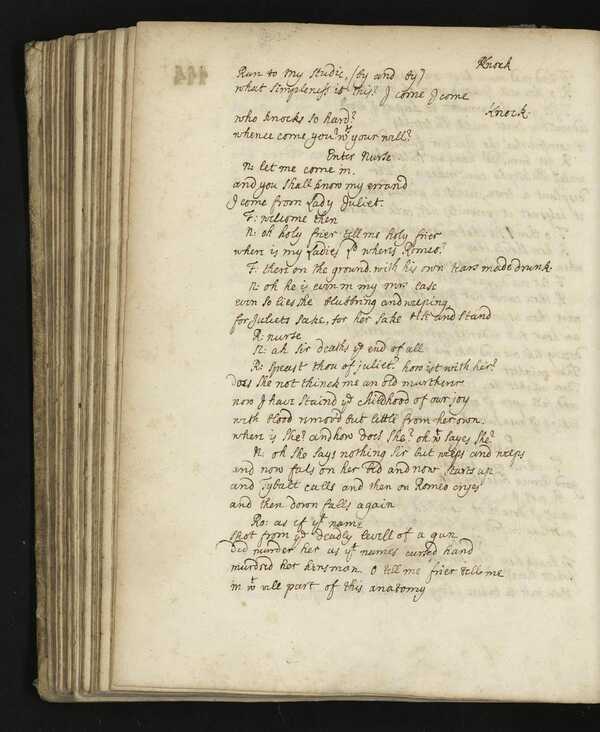 Knock
Run to my studie, (by and by)
what simpleness is this? J come J come
Knock
who knocks so hard?
whence come you? wt your will?
Enter Nurse
N: let me come in.
and you shall know my errand
J come from Lady Juliet.
F: wellcome then
N: oh holy frier tell me holy frier
where is my Ladies Ld wheirs Romeo?
F: there on the ground with his own tears made drunk
N: oh he is even in my mrs case
even so lies she blubbring and weeping
for Juliets sake, for her sake rise and stand
R: nurse
N: ah sir deaths ye end of all
R: speakst thou of juliet? how ist with her?
does she not thinck me an old murtherer
now J have staind ye childhood of our joy
with blood remoovd but little from her own.
where is she? and how does she? oh wt sayes she?
N: oh she says nothing sir but weeps and weeps
and now fals on her bed and now starts up
and Tybalt calls and then on Romeo cryes
and then down falls again
Ro: as if yt name
shot from ye deadly levell of a gun
Did murder her as yt names cursed hand
murdred her kinsman. O tell me frier tell me
in wt vile part of this anatomy